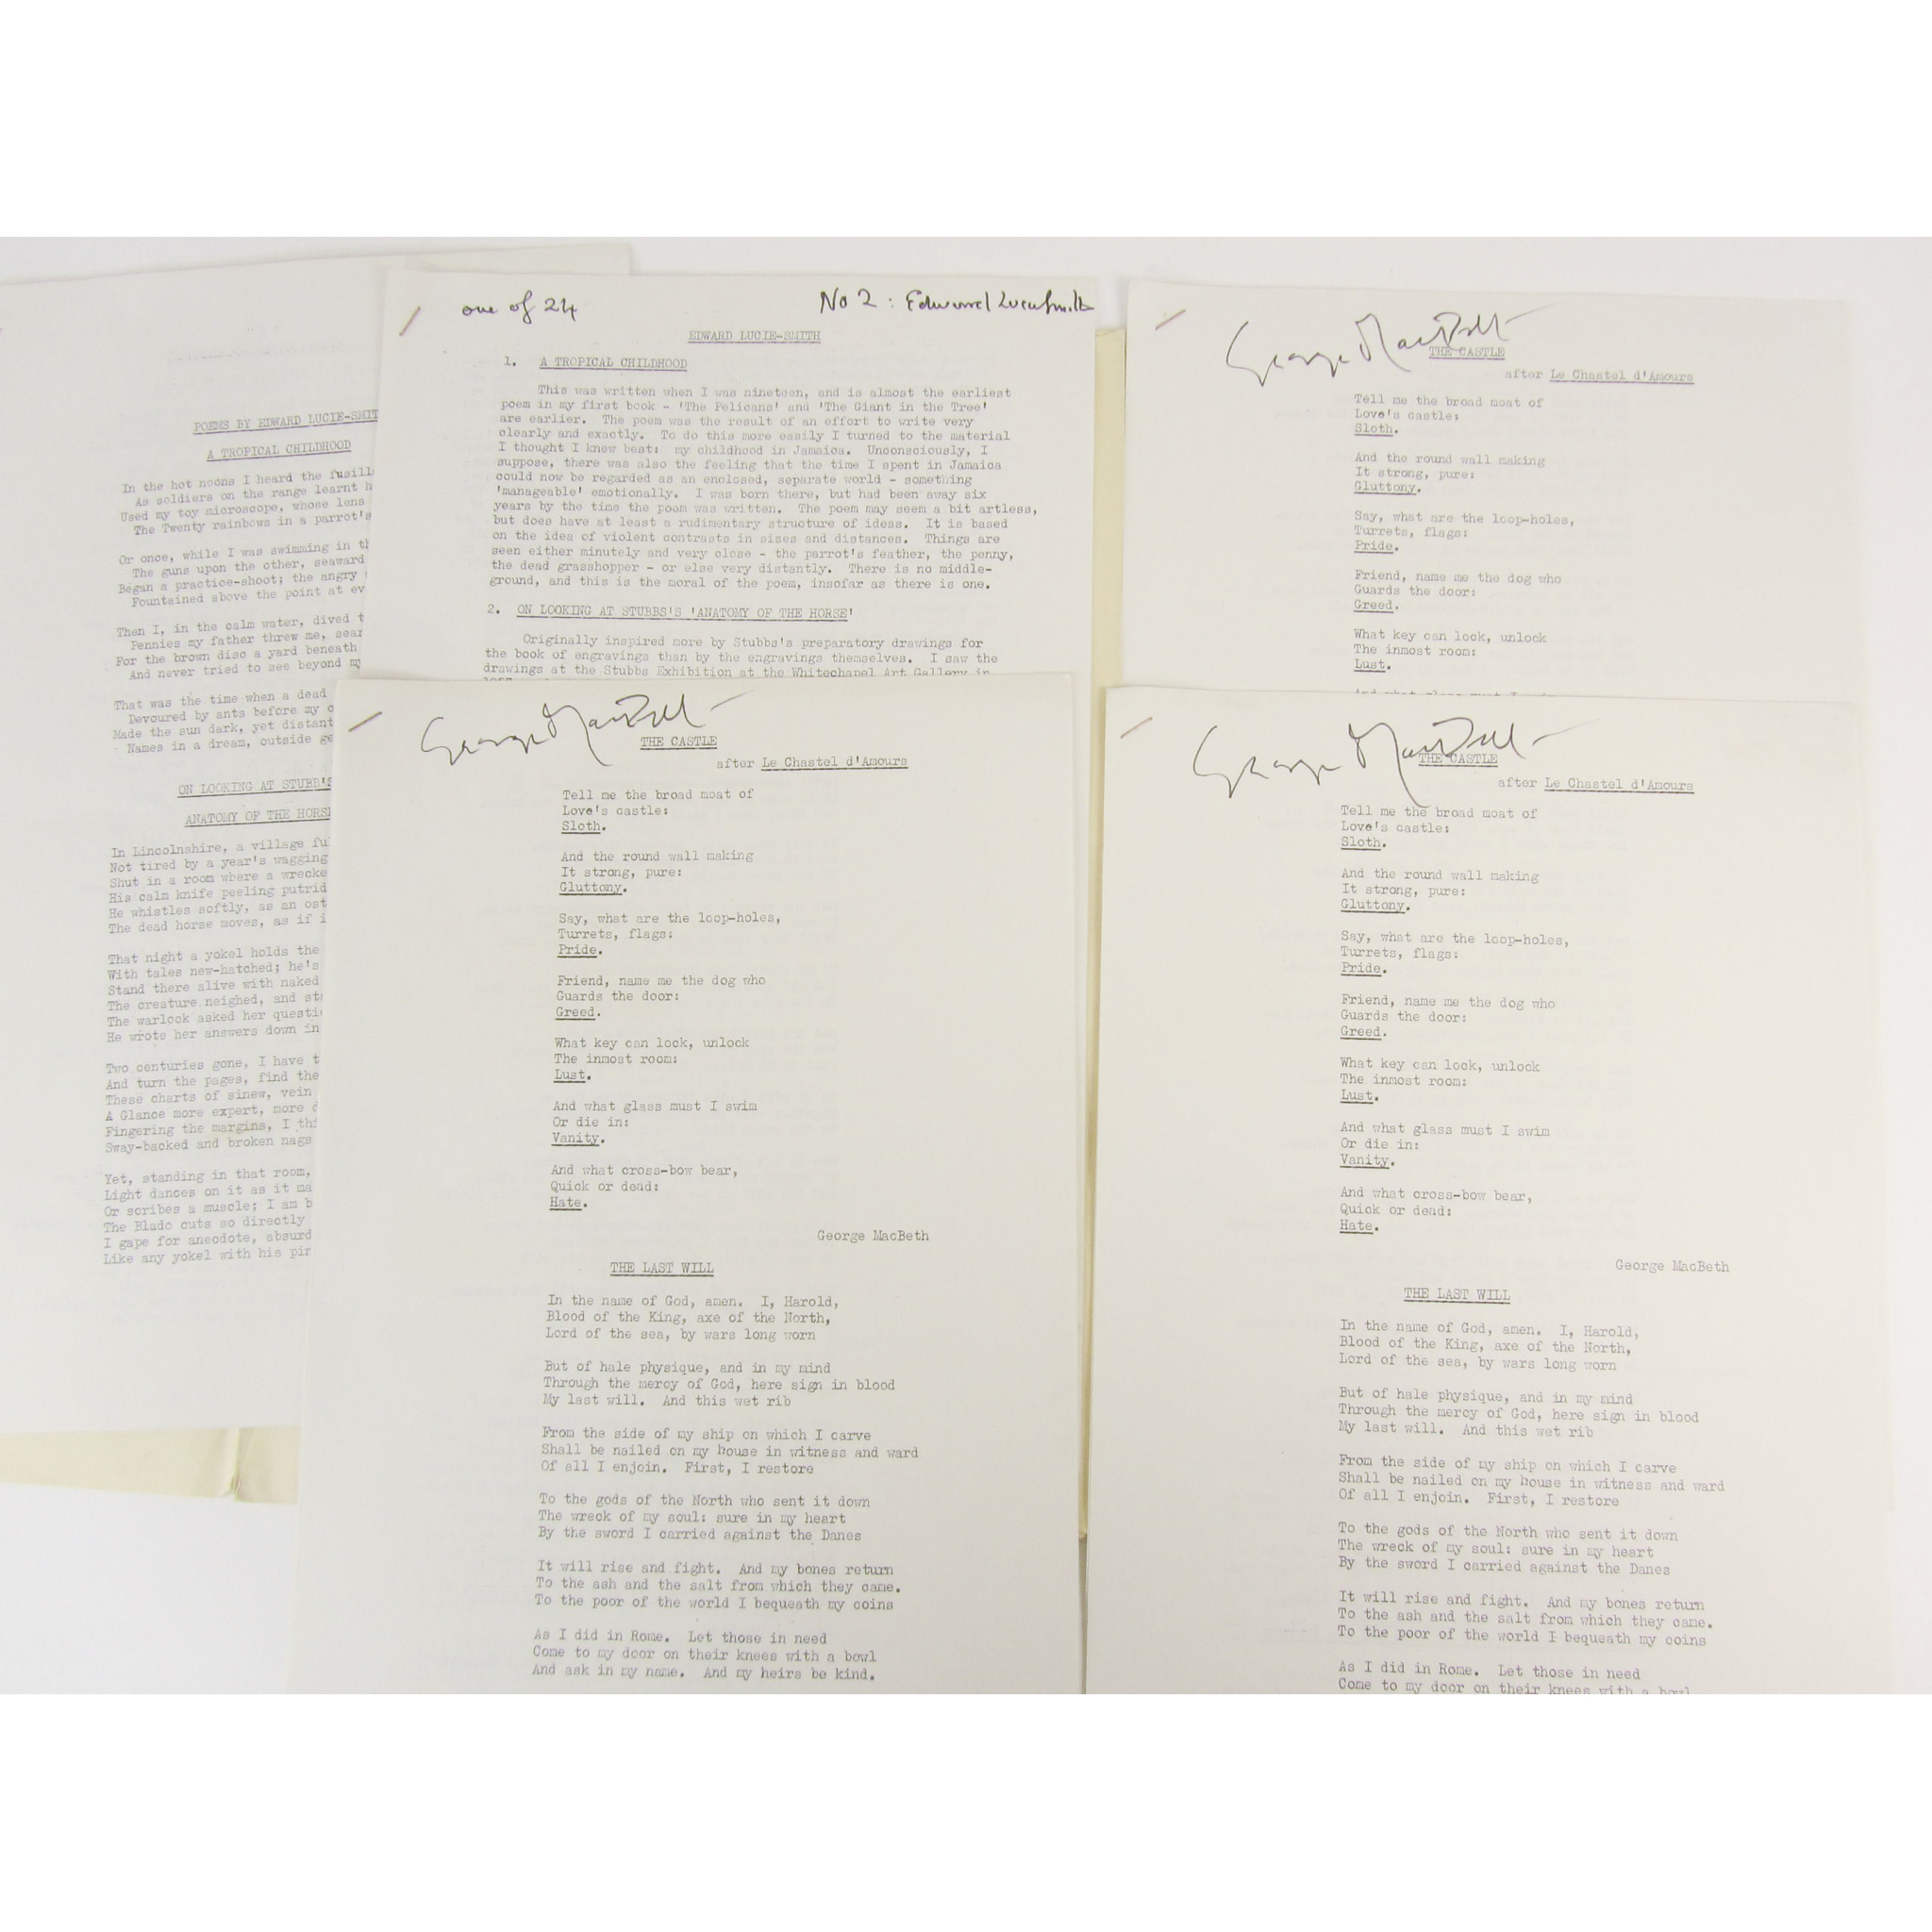 POEMS BY EDWARD LUCIE-SMIT
A TROPICAL CHILDHOOD
In the hot noons I heard the fusill
As soldiers on the range learnt h
Used my toy microscope, whose lens
The Twenty rainbows in a parrot's
Or once, while I was swimming in th
The guns upon the other, seaward
Began a practice-shoot; the angry
Fountained above the point at ev
Then I, in the calm water, dived t
Pennies my father threw me, sear
For the brown disc a yard beneath
And never tried to see beyond my
That was the time when a dead
Devoured by ants before my
Made the sun dark, yet distant
Names in a dream, outside ge
ON LOOKING AT STUBB'S
ANATOMY OF THE HORSE
In Lincolnshire, a village fu
Not tired by a year's wagging
Shut in a room where a wrecke
His calm knife peeling putrid
He whistles softly, as an ost
The dead horse moves, as if i
That night a yokel holds the
With tales new-hatched; he's
Stand there alive with naked
The creature neighed, and sta
The warlock asked her questi
He wrote her answers down in
Two centuries gone, I have t
And turn the pages, find the
These charts of sinew, vein
A Glance more expert, more d
Fingering the margins, I thi
Sway-backed and broken nags
Yet, standing in that room,
Light dances on it as it ma
Or scribes a muscle; I am b
The Blade cuts so directly
I gape for anecdote, absurd
Like any yokel with his pir
one of 24 No 2: Edward Lucie-Smith
EDWARD LUCIE-SMITH
1. A TROPICAL CHILDHOOD
This was written when I was nineteen, and is almost the earliest
poem in my first book - 'The Pelicans' and 'The Giant in the Tree'
are earlier. The poem was the result of an effort to write very
clearly and exactly. To do this more easily I turned to the material
I thought I knew best: my childhood in Jamaica. Unconsciously, I
suppose, there was also the feeling that the time I spent in Jamaica
could now be regarded as an enclosed, separate world - something
'manageable' emotionally. I was born there, but had been away six
years by the time the poem was written. The poem may seem a bit artless,
but does have at least a rudimentary structure of ideas. It is based
on the idea of violent contrasts in sizes and distances. Things are
seen either minutely and very close - the parrot's feather, the penny,
the dead grasshopper - or else very distantly. There is no middle-
ground, and this is the moral of the poem, insofar as there is one.
2. ON LOOKING AT STUBBS'S 'ANATOMY OF THE HORSE'
Originally inspired more by Stubbs's preparatory drawings for
the book of engravings than by the engravings themselves. I saw the
drawings at the Stubbs Exhibition at the Whitechapel Art Gallery in
George MacBeth
THE CASTLE
after Le Chastel d'Amours
Tell me the broad moat of
Love's castle:
Sloth.
And the round wall making
It strong, pure:
Gluttony.
Say, what are the loop-holes,
Turrets, flags:
Pride.
Friend, name me the dog who
Guards the door:
Greed.
What key can lock, unlock
The inmost room:
Lust.
And what glass must I swim
George MacBeth
THE CASTLE
after Le Chastel d'Amours
Tell me the broad moat of
Love's castle:
Sloth.
And the round wall making
It strong, pure:
Gluttony.
Say, what are the loop-holes,
Turrets, flags:
Pride.
Friend, name me the dog who
Guards the door:
Greed.
What key can lock, unlock
The inmost room:
Lust.
And what glass must I swim
Or die in:
Vanity.
And what cross-bow bear,
Quick or dead:
Hate.
George MacBeth
THE LAST WILL
In the name of God, amen. I, Harold,
Blood of the King, axe of the North,
Lord of the sea, by wars long worn
But of hale physique, and in my mind
Through the mercy of God, here sign in blood
My last will. And this wet rib
From the side of my ship on which I carve
Shall be nailed on my house in witness and ward
Of all I enjoin. First, I restore
To the gods of the North who sent it down
The wreck of my soul: sure in my heart
By the sword I carried against the Danes
It will rise and fight. And my bones return
To the ash and the salt from which they came.
To the poor of the world I bequeath my coins
As I did in Rome. Let those in need
Come to my door on their knees with a bowl
And ask in my name. And my heirs be kind.
George MacBeth
THE CASTLE
after Le Chastel d'Amours
Tell me the broad moat of
Love's castle:
Sloth.
And the round wall making
It strong, pure:
Gluttony.
Say, what are the loop-holes,
Turrets, flags:
Pride.
Friend, name me the dog who
Guards the door:
Greed.
What key can lock, unlock
The inmost room:
Lust.
And what glass must I swim
Or die in:
Vanity.
And what cross-bow bear,
Quick or dead:
Hate.
George MacBeth
THE LAST WILL
In the name of God, amen. I, Harold,
Blood of the King, axe of the North,
Lord of the sea, by wars long worn
But of hale physique, and in my mind
Through the mercy of God, here sign in blood
My last will. And this wet rib
From the side of my ship on which I carve
Shall be nailed on my house in witness and ward
Of all I enjoin. First, I restore
To the gods of the North who sent it down
The wreck of my soul: sure in my heart
By the sword I carried against the Danes
It will rise and fight. And my bones return
To the ash and the salt from which they came.
To the poor of the world I bequeath my coins
As I did in Rome. Let those in need
Come to my door on their knees with a bowl